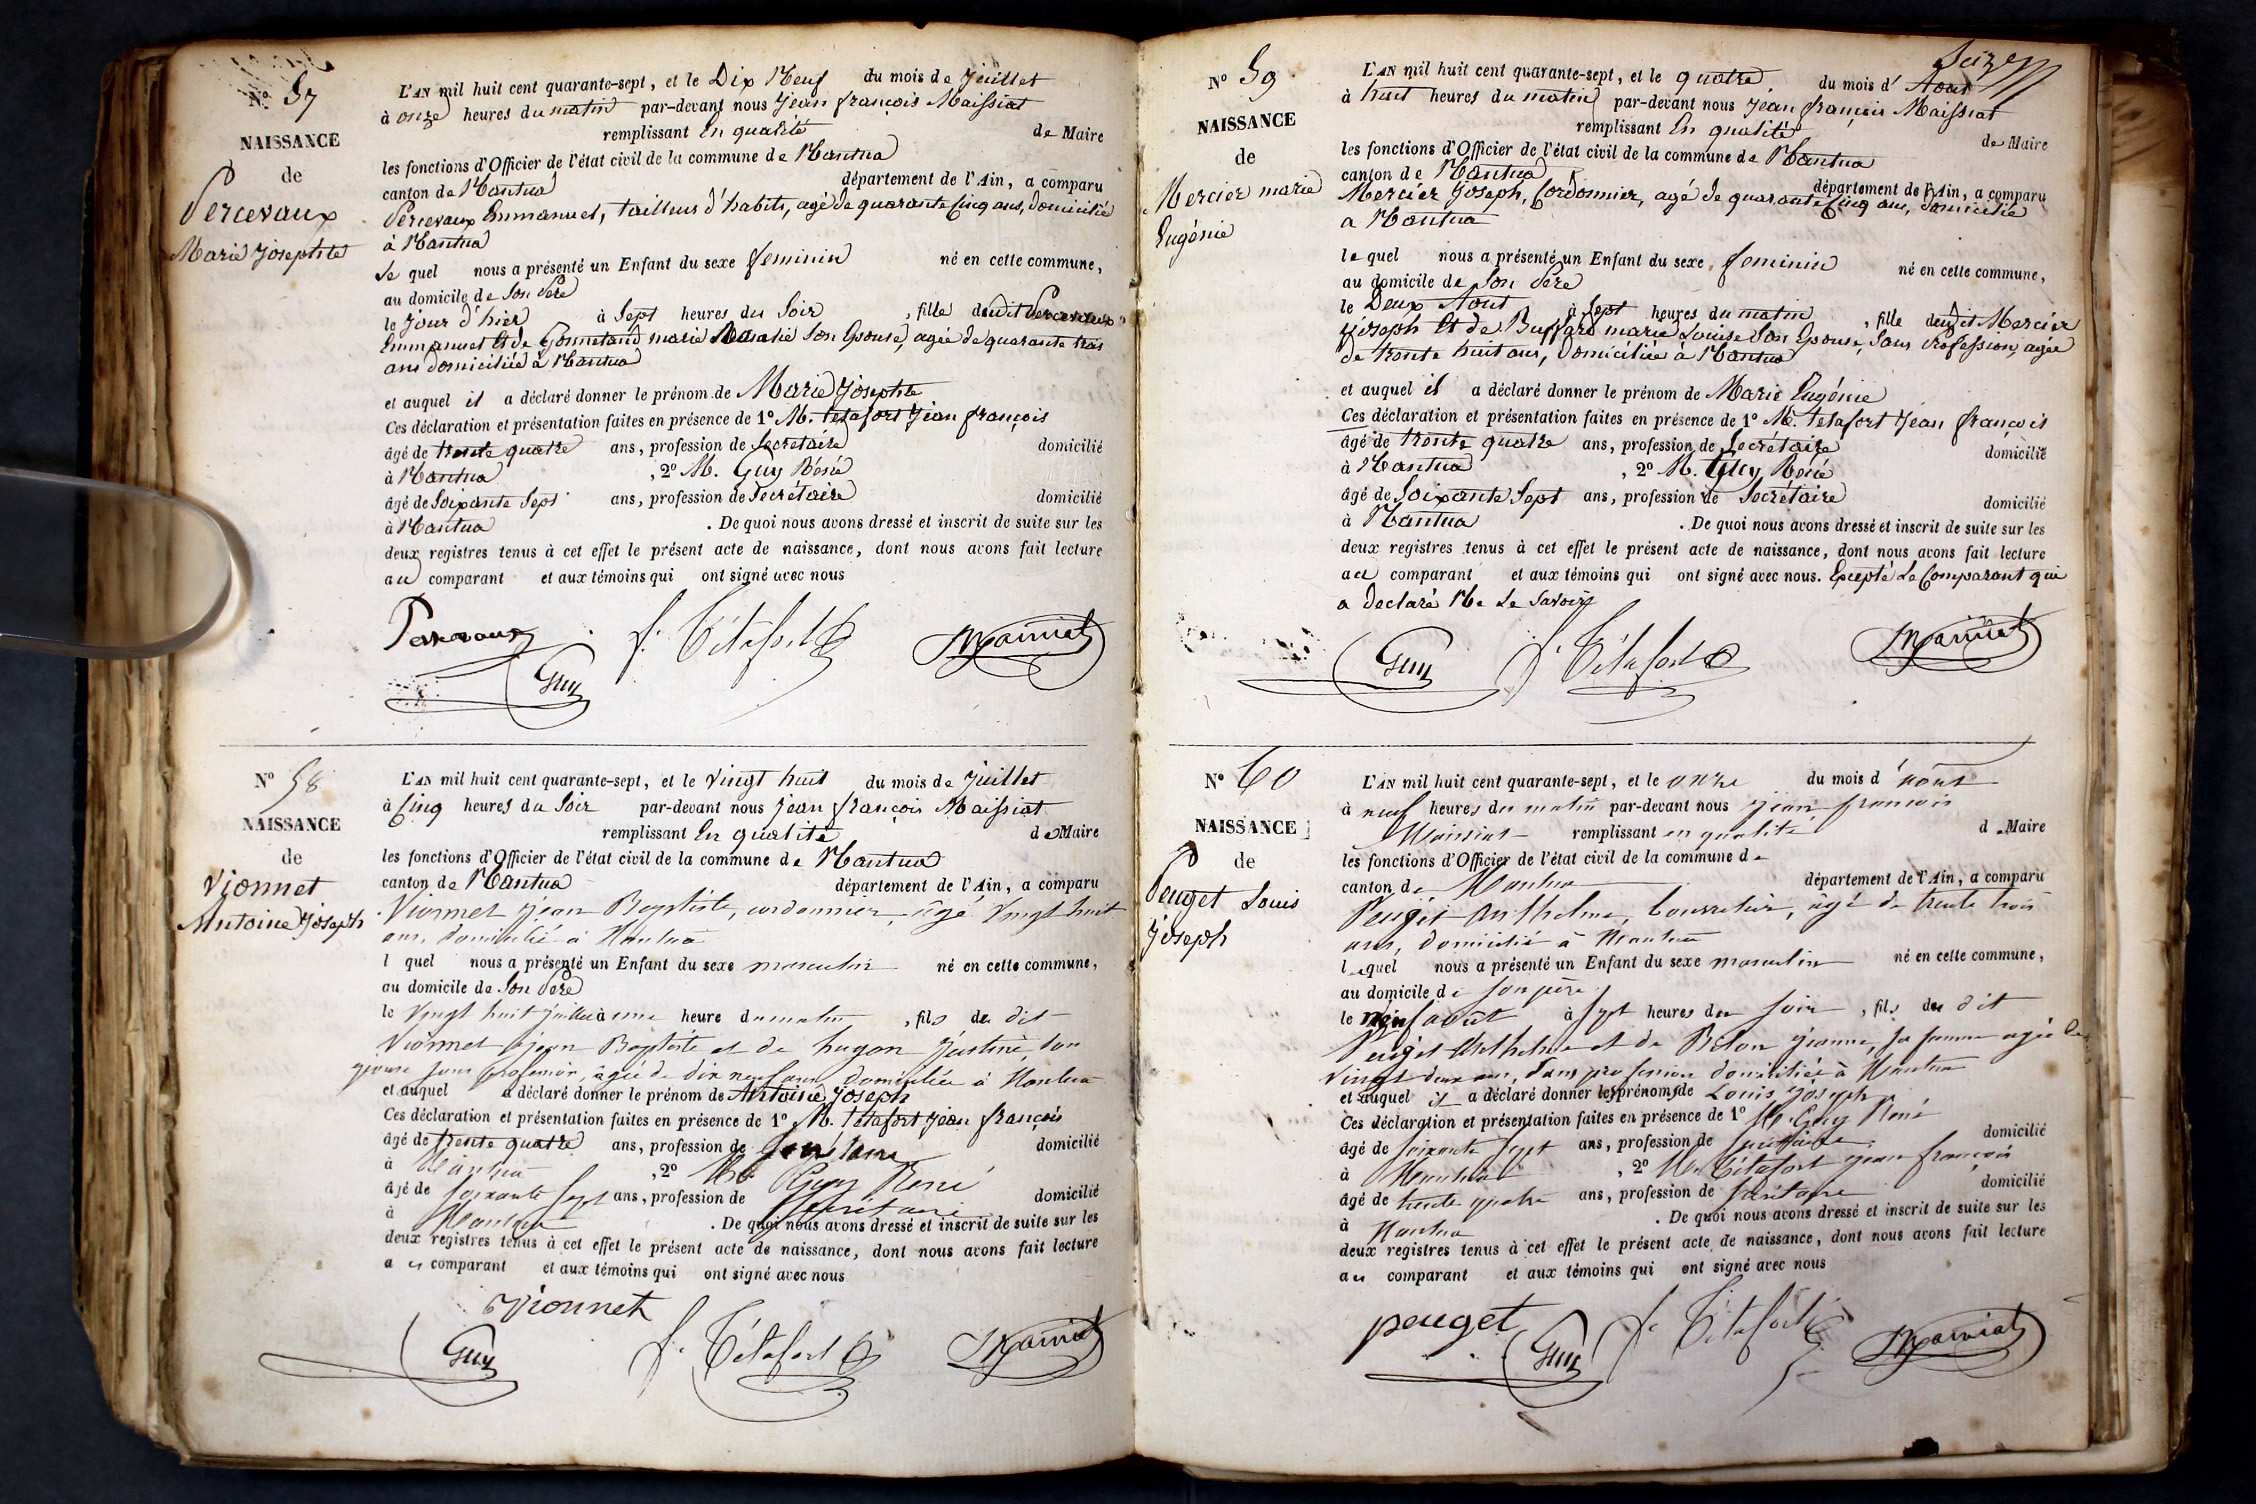 N° 57
NAISSANCE
de
Percevaux
Marie Josephte
L'AN mil huit cent quarante-sept, et le Dix Neuf du mois de Juillet
à onze heures du matin par-devant nous Jean françois Maissiat
remplissant En qualité de Maire
les fonctions d'Officier de l'état civil de la commune de Nantua
canton de Nantua département de l'Ain, a comparu
Percevaux Emmanuel, tailleur d'habits, agé de quarante Cinq ans, domicilié
à Nantua
Le quel nous a présenté un Enfant du sexe feminin né en cette commune,
au domicile de Son Père
le Jour d'hier à Sept heures du Soir, fille dudit Percevaux
Emmanuel Et de marie Son Epouse, agée de quarante trois
ans domiciliée à Nantua
et auquel il a déclaré donner le prénom de Marie Josephte
Ces déclaration et présentation faites en présence de 1° M. tetafort Jean françois
âgé de trente quatre ans, profession de Secrétaire domicilié
à Nantua, 2° M. Guy Réné
âgé de Soixante Sept ans, profession de Secrétaire domicilié
à Nantua. De quoi nous avons dressé et inscrit de suite sur les
deux registres tenus à cet effet le présent acte de naissance, dont nous avons fait lecture
au comparant et aux témoins qui ont signé avec nous
Percevaux f. Tétafort Maissiat
Guy
N° 58
NAISSANCE
de
Vionnet
Antoine Joseph
L'AN mil huit cent quarante-sept, et le vingt huit du mois de Juillet
à Cinq heures du Soir par-devant nous Jean françois Maissiat
remplissant En qualité de Maire
les fonctions d'Officier de l'état civil de la commune de Nantua
canton de Nantua département de l'Ain, a comparu
Vionnet Jean Baptiste, cordonnier, âgé vingt huit
ans, domicilié à Nantua
l quel nous a présenté un Enfant du sexe masculin né en cette commune,
au domicile de Son Père
le vingt huit juillet à une heure du matin, fils du dit
Vionnet Jean Baptiste et de hugon Justine, son
épouse sans profession, âgée de dix neuf ans domiciliée à Nantua
et auquel a déclaré donner le prénom de Antoine Joseph
Ces déclaration et présentation faites en présence de 1° M. tétafort Jean françois
âgé de trente quatre ans, profession de Secrétaire domicilié
à Nantua, 2° Mr Guy René
âgé de soixante sept ans, profession de secrétaire domicilié
à Nantua. De quoi nous avons dressé et inscrit de suite sur les
deux registres tenus à cet effet le présent acte de naissance, dont nous avons fait lecture
au comparant et aux témoins qui ont signé avec nous
Vionnet
Guy f. Tétafort Maissiat
Seize
N° 59
NAISSANCE
de
Mercier marie
Eugénie
L'AN mil huit cent quarante-sept, et le quatre du mois d' Aout
à huit heures du matin par-devant nous Jean françois Maissiat
remplissant En qualité de Maire
les fonctions d'Officier de l'état civil de la commune de Nantua
canton de Nantua département de l'Ain, a comparu
Mercier Joseph, Cordonnier, agé de quarante Cinq ans, domicilié
a Nantua
le quel nous a présenté un Enfant du sexe feminin né en cette commune,
au domicile de Son Père
le Deux Aout à Sept heures du matin, fille dudit Mercier
Joseph Et de Buffard marie Louise Son Epouse, Sans Profession, agée
de trente huit ans, Domiciliée à Nantua
et auquel il a déclaré donner le prénom de Marie Eugénie
Ces déclaration et présentation faites en présence de 1° M. tetafort Jean françois
âgé de trente quatre ans, profession de Secrétaire domicilié
à Nantua, 2° M. Guy Réné
âgé de Soixante Sept ans, profession de Secrétaire domicilié
à Nantua. De quoi nous avons dressé et inscrit de suite sur les
deux registres tenus à cet effet le présent acte de naissance, dont nous avons fait lecture
au comparant et aux témoins qui ont signé avec nous. Excepté Le Comparant qui
a declaré Ne Le Savoir
Guy f. Tétafort Maissiat
N° 60
NAISSANCE
de
Peuget Louis
Joseph
L'AN mil huit cent quarante-sept, et le onze du mois d' août
à neuf heures du matin par-devant nous Jean françois
Maissiat remplissant en qualité d Maire
les fonctions d'Officier de l'état civil de la commune de
canton de Nantua département de l'Ain, a comparu
Peuget Anthelme, âgé de trente trois
ans, domicilié à Nantua
lequel nous a présenté un Enfant du sexe masculin né en cette commune,
au domicile de son père
le neuf août à sept heures du soir, fils du dit
Peuget Anthelme et de Jeanne, sa femme agée de
vingt deux ans, sans profession domiciliée à Nantua
et auquel il a déclaré donner les prénoms de Louis Joseph
Ces déclaration et présentation faites en présence de 1° M. Guy René
âgé de soixante sept ans, profession de secrétaire domicilié
à Nantua, 2° Mr Tétafort Jean françois
âgé de trente quatre ans, profession de secrétaire domicilié
à Nantua. De quoi nous avons dressé et inscrit de suite sur les
deux registres tenus à cet effet le présent acte de naissance, dont nous avons fait lecture
au comparant et aux témoins qui ont signé avec nous
peuget f. Tétafort
Guy Maissiat